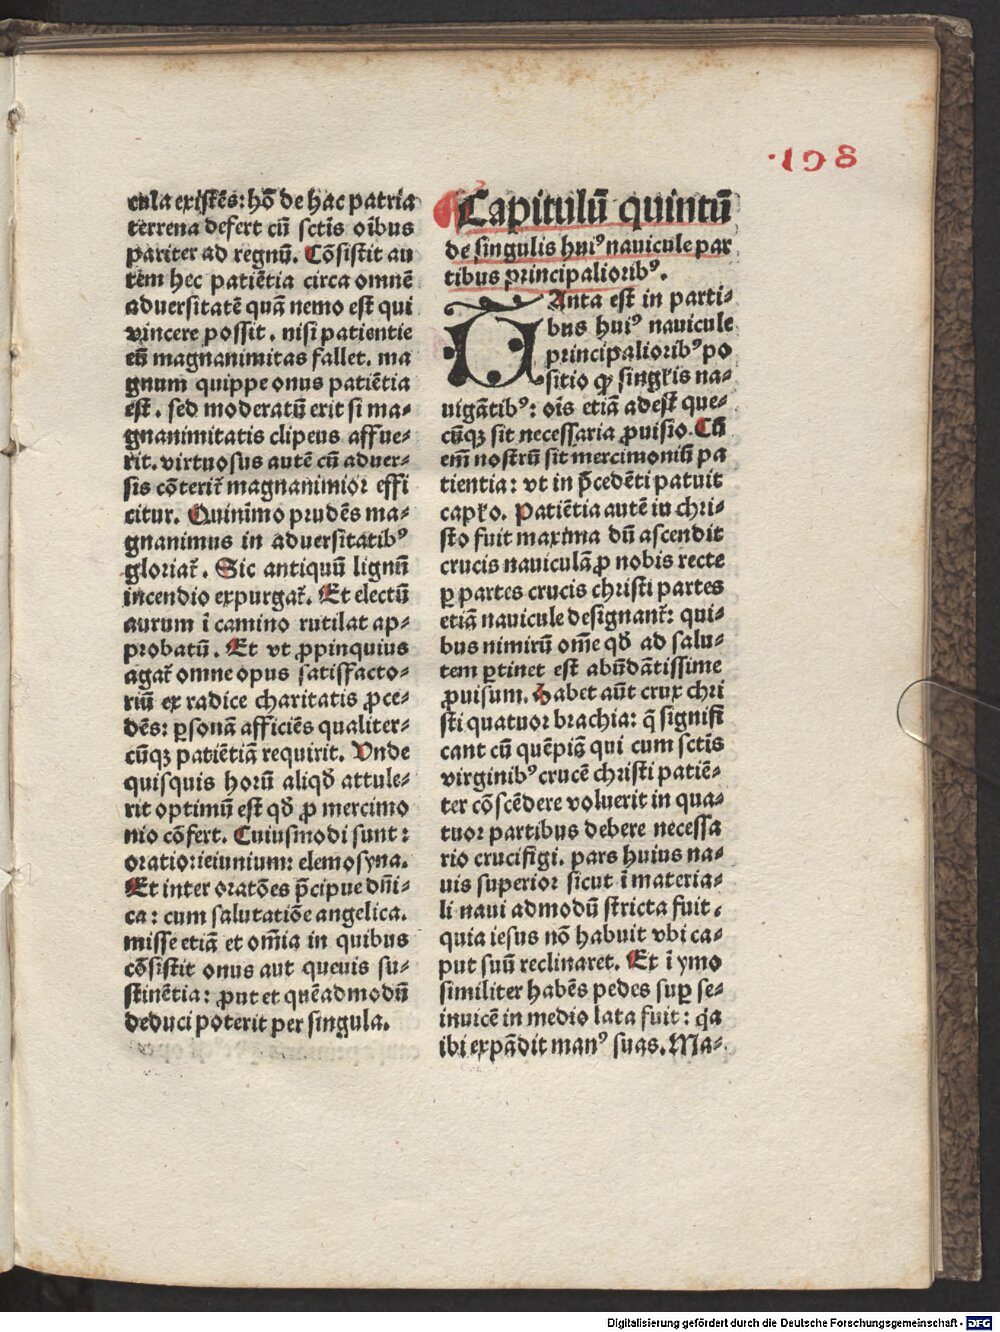 ·198
cula existēs: hō de hac patria
terrena defert cū sctis oībus
pariter ad regnū. Cōsistit au
tem hec patiētia circa omnē
aduersitatē quā nemo est qui
vincere possit. nisi patientie
eū magnanimitas fallet. ma
gnum quippe onus patiētia
est. sed moderatū erit si ma⸗
gnanimitatis clipeus affue⸗
rit. virtuosus autē cū aduer⸗
sis cōterit᷑ magnanimior effi
citur. Quinimo prudēs ma⸗
gnanimus in aduersitatibꝰ
gloriat᷑. Sic antiquū lignū
incendio expurgat᷑. Et electū
aurum ī camino rutilat ap⸗
probatū. Et vt ꝓpinquius
agat᷑ omne opus satisfacto⸗
riū ex radice charitatis ꝓce⸗
dēs: ꝑsonā afficiēs qualiter⸗
cūqꝫ patiētiā requirit. Vnde
quisquis horū aliqđ attule⸗
rit optimū est qđ ꝓ mercimo
nio cōfert. Cuiusmodi sunt:
oratio: ieiunium: elemosyna.
Et inter oratōes p̄cipue dn̄i⸗
ca: cum salutatiōe angelica.
misse etiā et om̄ia in quibus
cōsistit onus aut queuis su⸗
stinētia: ꝓut et quēadmodū
deduci poterit per singula.
Capitulū quintū
de singulis huiꝰ nauicule par
tibus principalioribꝰ.
Tanta est in parti⸗
bus huiꝰ nauicule
principalioribꝰ po
sitio ꝙ singl̓is na⸗
uigātibꝰ: oīs etiā adest que⸗
cūqꝫ sit necessaria ꝓuisio. Cū
em̄ nostrū sit mercimoniū pa
tientia: vt in p̄cedēti patuit
capl̓o. Patiētia autē in chri⸗
sto fuit maxima dū ascendit
crucis nauiculā ꝓ nobis recte
ꝑ partes crucis christi partes
etiā nauicule designant᷑: qui⸗
bus nimirū om̄e qđ ad salu⸗
tem ꝑtinet est abūdātissime
ꝓuisum. Habet aūt crux chri
sti quatuor brachia: q̄ signifi
cant cū quēpiā qui cum sctīs
virginibꝰ crucē christi patiē⸗
ter cōscēdere voluerit in qua⸗
tuor partibus debere necessa
rio crucifigi. pars huius na⸗
uis superior sicut ī materia⸗
li naui admodū stricta fuit.
quia iesus nō habuit vbi ca⸗
put suū reclinaret. Et ī ymo
similiter habēs pedes suꝑ se⸗
inuicē in medio lata fuit: qa
ibi expādit manꝰ suas. Ma⸗
Digitalisierung gefördert durch die Deutsche Forschungsgemeinschaft - DFG